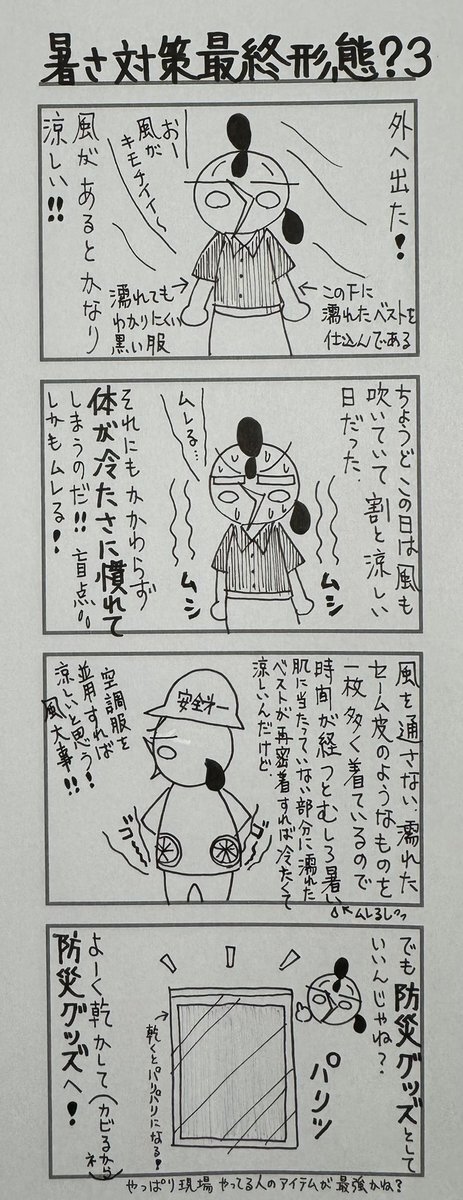 暑さ対策最終形態?3
外へ出た!
おー
風が
キモチイイ〜
風があるとかなり
涼しい!!
この下に
濡れたベストを
仕込んである
濡れても
わかりにくい
黒い服
ちょうどこの日は風も
吹いていて割と涼しい
日だった。
ムレる…
ムシ
ムシ
それにもかかわらず
体が冷たさに慣れて
しまうのだ!!盲点。
しかもムレる!
風を通さない、濡れた
セーム皮のようなものを
一枚多く着ているので
時間が経つとむしろ暑い
ムレるし
肌に当たっていない部分に濡れた
ベストが再密着すれば冷たくて
涼しいんだけど。
安全第一
空調服を
並用すれば
涼しいと思う!
風大事!!
ゴー
ゴー
でも防災グッズとして
いいんじゃね?
パリッ
乾くとパリパリになる!
よーく乾かして(カビるからネ)
防災グッズへ!
やっぱり現場やってる人のアイテムが最強かね?